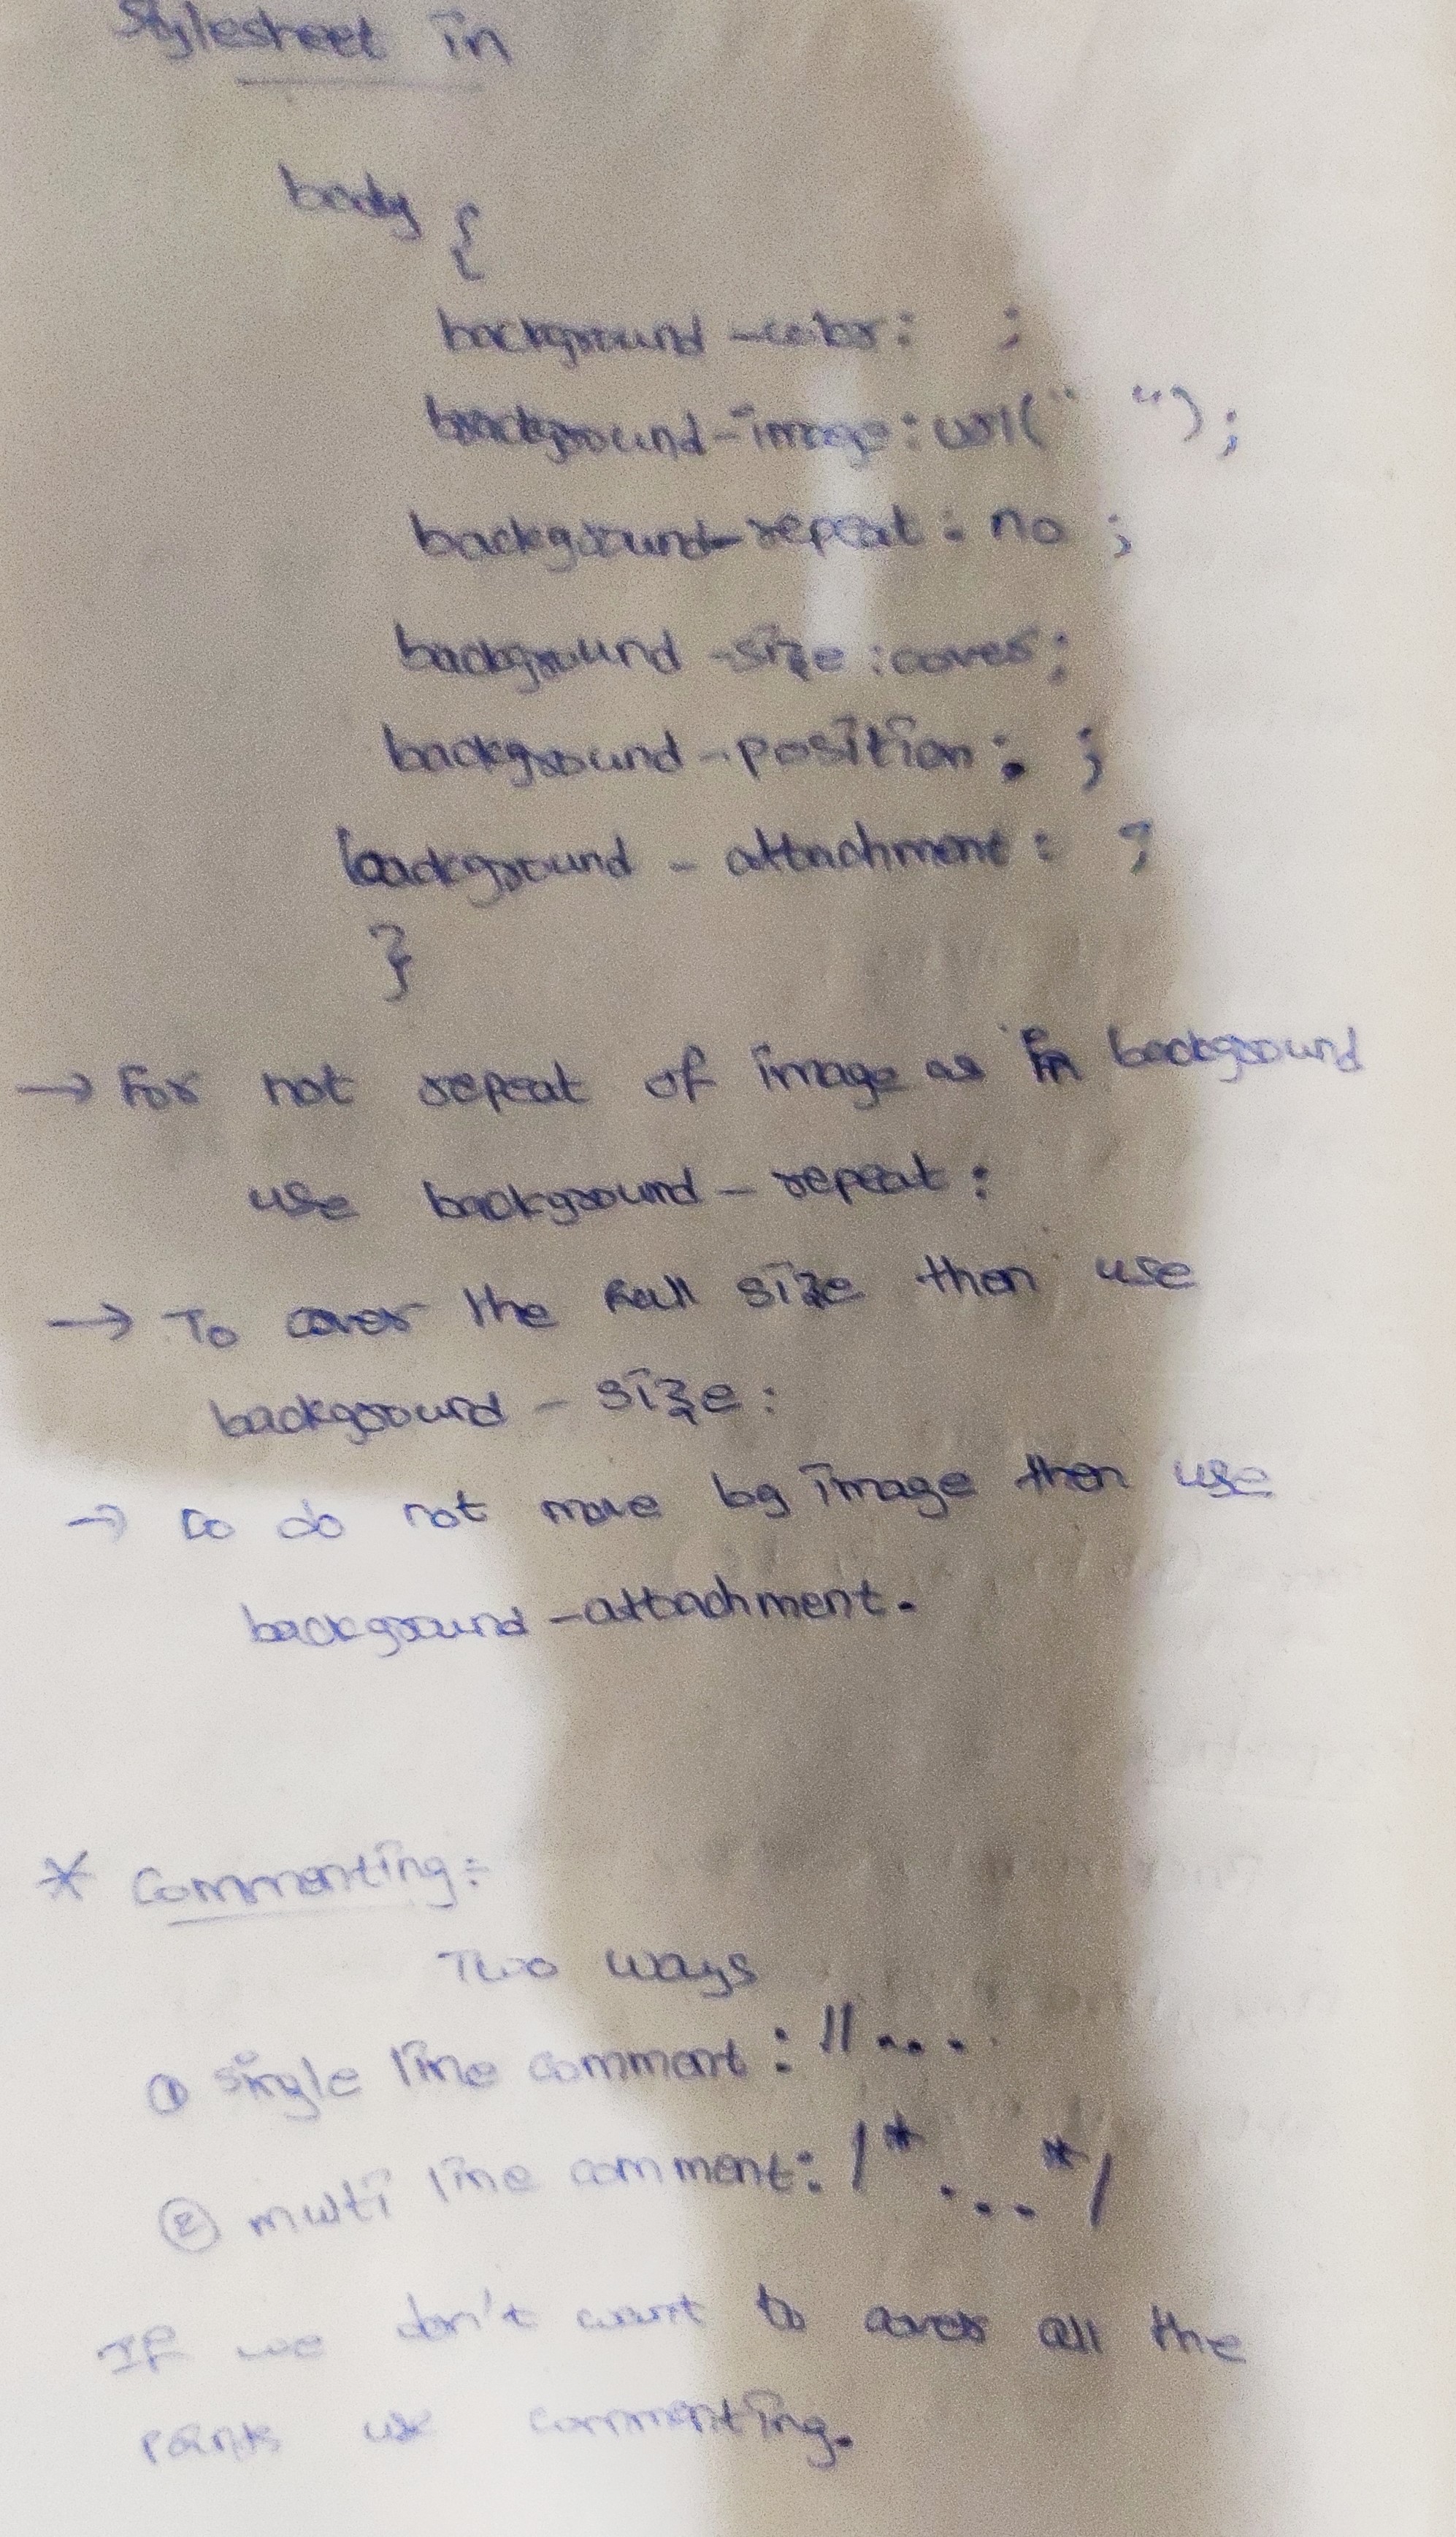 Stylesheet in
body {
background-color: ;
background-image: url(" ");
background-repeat: no ;
background-size: cover;
background-position: ;
background-attachment: ;
}
→ For not repeat of image as in background
use background-repeat:
→ To cover the full size then use
background-size:
→ to do not move bg image then use
background-attachment.
* Commenting:-
Two ways
① single line comment: //....
② multi line comment: /*...*/
If we don't want to cover all the
points use commenting.